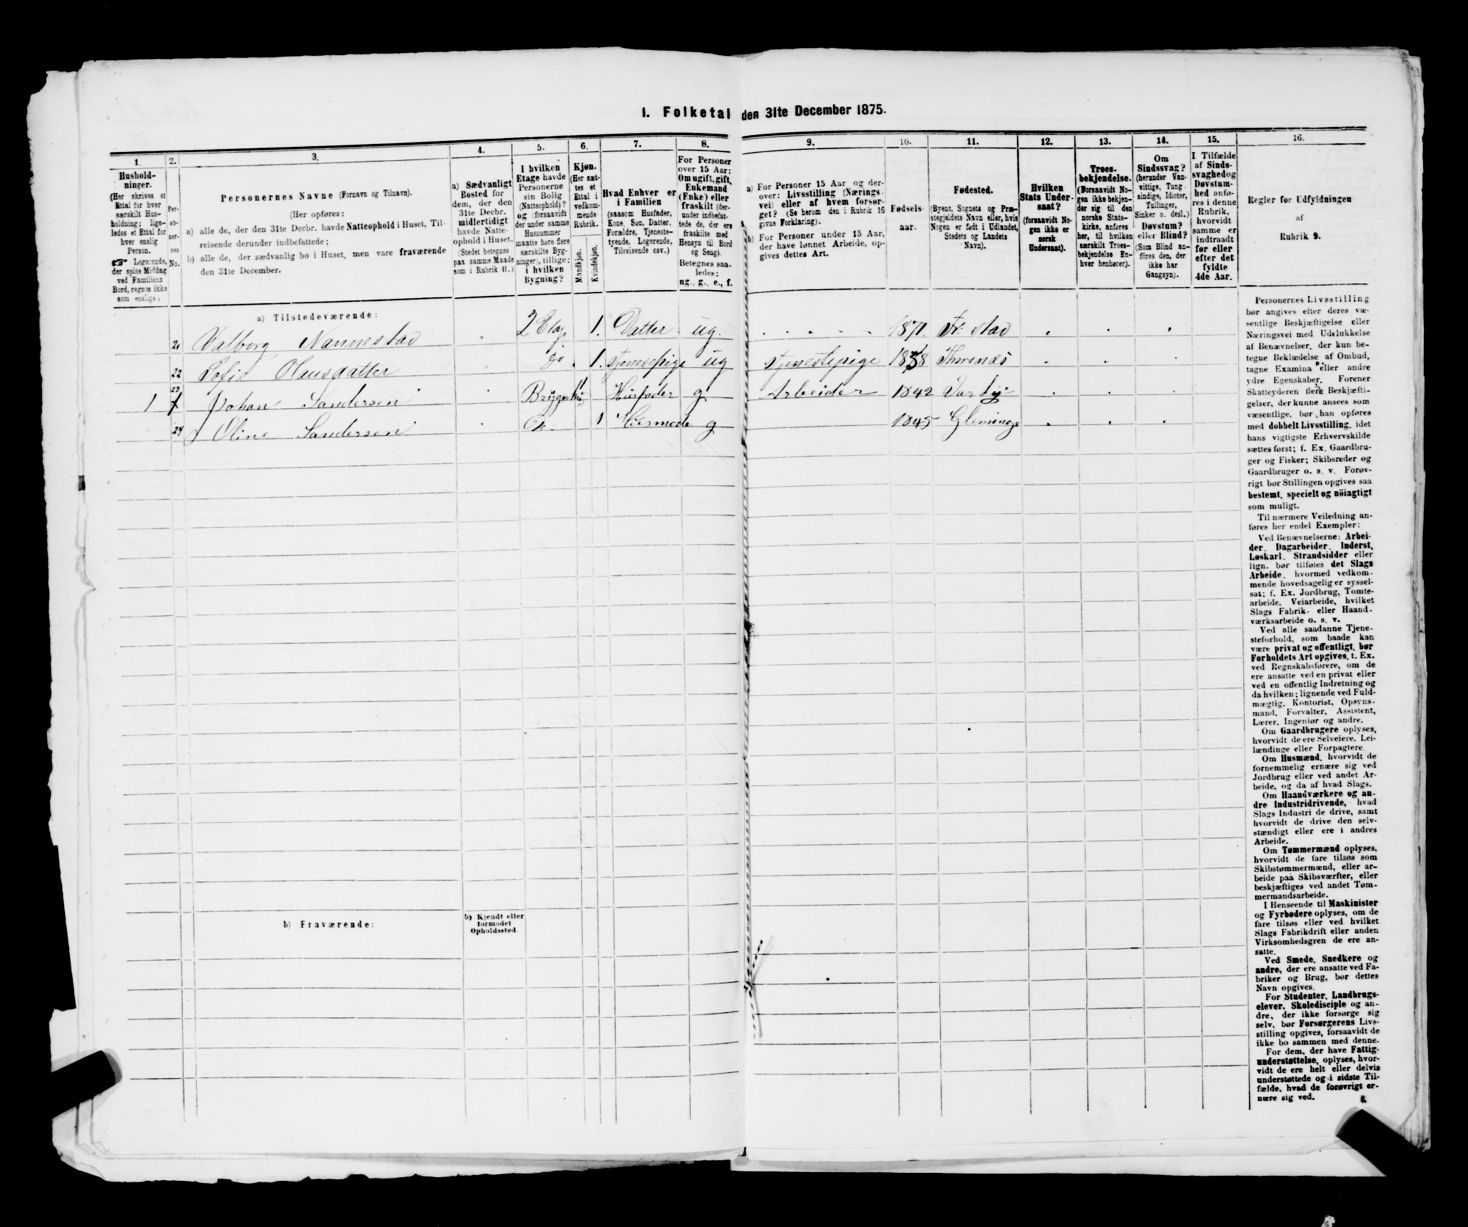 I. Folketal den 31te December 1875.
1.
Hushold-
ninger.
(Her skrives et
Ettal for hver
særskilt Hus-
holdning; lige-
ledes et Ettal for
hver enslig
Person.
☞ Logerende,
der spise Middag
ved Familiens
Bord, regnes ikke
som enslige.)
2.
Per-
so-
ner-
nes
No.
3.
Personernes Navne (Fornavn og Tilnavn).
(Her opføres:
a) alle de, der den 31te Decbr. havde Natteophold i Huset, Til-
reisende derunder indbefattede;
b) alle de, der sædvanlig bo i Huset, men vare fraværende
den 31te December.
4.
a) Sædvanligt
Bosted for
dem, der den
31te Decbr.
midlertidigt
havde Natte-
ophold i Huset.
(Stedet betegnes
paa samme Maade
som i Rubrik 11.)
5.
I hvilken
Etage havde
Personerne
sin Bolig
(Natteophold)?
og (forsaavidt
der under samme
Husnummer
maatte høre flere
særskilte Byg-
ninger), tillige:
i hvilken
Bygning?
6.
Kjøn.
(Her sæt-
tes et
Ettal i
vedkom-
mende
Rubrik.
Mandkjøn.
Kvindekjøn.
7.
Hvad Enhver er
i Familien
(saasom Husfader,
Kone, Søn, Datter,
Forældre, Tjeneste-
tyende, Logerende,
Tilreisende osv.)
8.
For Personer
over 15 Aar:
Om ugift, gift,
Enkemand
(Enke) eller
fraskilt (der-
under indbefat-
tede de, der ere
fraskilte med
Hensyn til Bord
og Seng).
Betegnes saa-
ledes:
ug., g., e., f.
9.
a) For Personer 15 Aar og der-
over: Livsstilling (Nærings-
vei) eller af hvem forsør-
get? (Se herom den i Rubrik 16
givne Forklaring).
b) For Personer under 15 Aar,
der have lønnet Arbeide, op-
gives dettes Art.
10.
Fødsels-
aar.
11.
Fødested.
(Byens, Sognets og Præ-
stegjeldets Navn eller, hvis
Nogen er født i Udlandet,
Stedets og Landets
Navn).
12.
Hvilken
Stats Under-
saat?
(forsaavidt No-
gen ikke er
norsk
Undersaat).
13.
Troes-
bekjendelse.
(Forsaavidt No-
gen ikke bekjen-
der sig til den
norske Stats-
kirke, anføres
her, til hvilken
særskilt Troes-
bekjendelse En-
hver henhører).
14.
Om
Sindssvag?
(herunder Van-
vittige, Tung-
sindige, Idioter,
Tullinger,
Sinker o. desl.)
Døvstum?
eller Blind?
(Som Blind an-
føres den, der
ikke har
Gangsyn).
15.
I Tilfælde
af Sinds-
svaghed og
Døvstum-
hed anfø-
res i denne
Rubrik,
hvorvidt
samme er
indtraadt
før eller
efter det
fyldte
4de Aar.
16.
Regler for Udfyldningen
af
Rubrik 9.
a) Tilstedeværende:
21 Valborg Nannestad 2 Etag. 1. Datter ug. 1871 Fr. stad
22 Sofie Hansdatter do 1. tjenestepige ug tjenestepige 1858
1 23 Johan Sandersen 1 Husfader g. Arbeider 1842
24 Oline Sandersen do 1 Husmoder g 1845 Gleminge
b) Fraværende:
b) Kjendt eller
formodet
Opholdssted.
Personernes Livsstilling
bør angives efter deres væ-
sentlige Beskjæftigelse eller
Næringsvei med Udelukkelse
af Benævnelser, der kun be-
tegne Beklædelse af Ombud,
tagne Examina eller andre
ydre Egenskaber. Forener
Skatteyderen flere Beskjæfti-
gelser, der kunne ansees som
væsentlige, bør han opføres
med dobbelt Livsstilling, idet
hans vigtigste Erhvervskilde
sættes først; f. Ex. Gaardbru-
ger og Fisker; Skibsreder og
Gaardbruger o. s. v. Forøv-
rigt bør Stillingen opgives saa
bestemt, specielt og nöiagtigt
som muligt.
Til nærmere Veiledning an-
føres her endel Exempler:
Ved Benævnelserne: Arbei-
der, Dagarbeider, Inderst,
Løskarl, Strandsidder eller
lign. bør tilføies det Slags
Arbeide, hvormed vedkom-
mende hovedsagelig er syssel-
sat; f. Ex. Jordbrug, Tomte-
arbeide, Veiarbeide, hvilket
Slags Fabrik- eller Haand-
værksarbeide o. s. v.
Ved alle saadanne Tjene-
steforhold, som baade kan
være privat og offentligt, bør
Forholdets Art opgives, t. Ex.
ved Regnskabsførere, om de
ere ansatte ved en privat eller
ved en offentlig Indretning og
da hvilken; lignende ved Fuld-
mægtig, Kontorist, Opsyns-
mand, Forvalter, Assistent,
Lærer, Ingeniør og andre.
Om Gaardbrugere oplyses,
hvorvidt de ere Selveiere, Lei-
lændinge eller Forpagtere.
Om Husmænd, hvorvidt de
fornemmelig ernære sig ved
Jordbrug eller ved andet Ar-
beide, og da af hvad Slags.
Om Haandværkere og an-
dre Industridrivende, hvad
Slags Industri de drive, samt
hvorvidt de drive den selv-
stændigt eller ere i andres
Arbeide.
Om Tømmermænd oplyses,
hvorvidt de fare tilsøs som
Skibstømmermænd, eller ar-
beide paa Skibsværfter, eller
beskjæftiges ved andet Tøm-
mermandsarbeide.
I Henseende til Maskinister
og Fyrbødere oplyses, om de
fare tilsøs eller ved hvilket
Slags Fabrikdrift eller anden
Virksomhedsgren de ere an-
satte.
Ved Smede, Snedkere og
andre, der ere ansatte ved Fa-
briker og Brug, bør dettes
Navn opgives.
For Studenter, Landbrugs-
elever, Skoledisciple og an-
dre, der ikke forsørge sig
selv, bør Forsørgerens Livs-
stilling opgives, forsaavidt de
ikke bo sammen med denne.
For dem, der have Fattig-
understøttelse, oplyses, hvor-
vidt de ere helt eller delvis
understøttede og i sidste Til-
fælde, hvad de forøvrigt er-
nære sig ved.